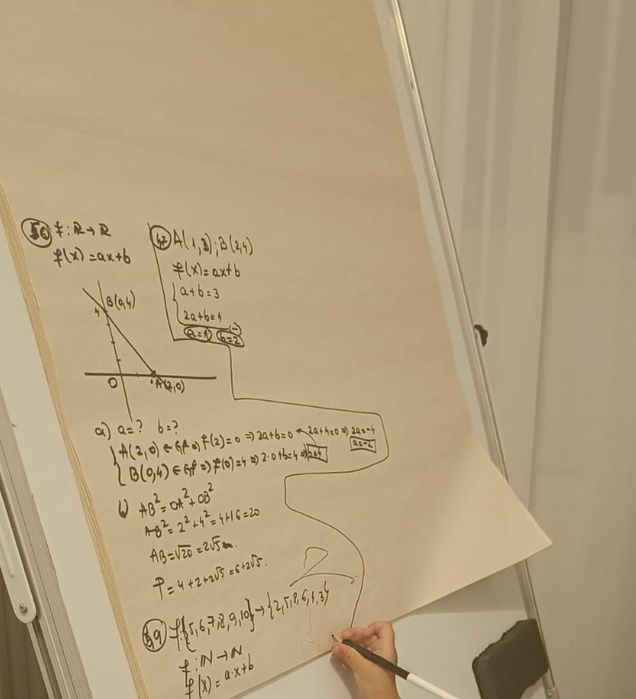 50 f: R → R
f(x) = ax+b
B(0,4)
4
O
A(2,0)
A(1,3); B(2,4)
f(x) = ax+b
a+b=3
2a+b=4
(-)
a=1 b=2
a) a=? b=?
A(2,0) ∈ Gf => f(2)=0 => 2a+b=0 2a+4=0 => 2a=-4
a=-2
B(0,4) ∈ Gf => f(0)=4 => 2·0+b=4 =>
b) AB²=OA²+OB²
AB²=2²+4²=4+16=20
AB=√20=2√5
P=4+2+2√5=6+2√5.
f:{5,6,7,8,9,10}→
f: N → N
f(x) = a·x+b